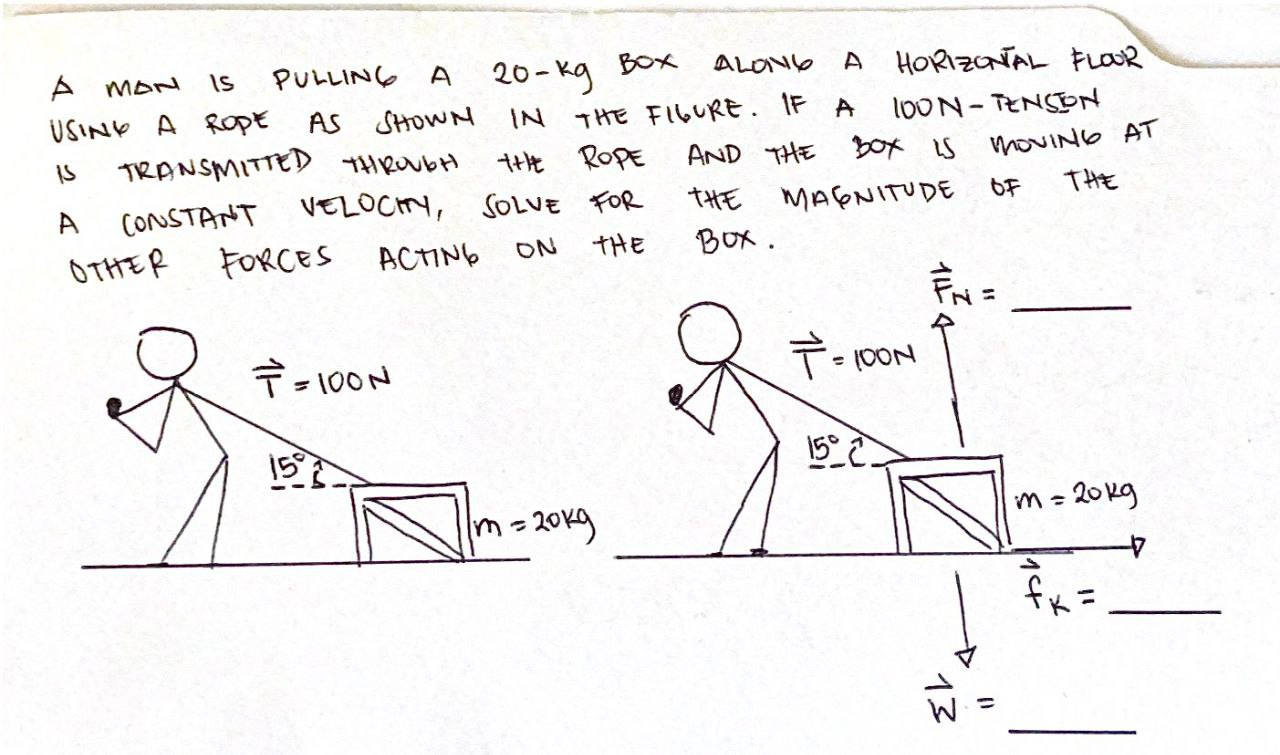 A MAN IS PULLING A 20-kg BOX ALONG A HORIZONTAL FLOOR
USING A ROPE AS SHOWN IN THE FIGURE. IF A 100N-TENSION
IS TRANSMITTED THROUGH THE ROPE AND THE BOX IS MOVING AT
A CONSTANT VELOCITY, SOLVE FOR THE MAGNITUDE OF THE
OTHER FORCES ACTING ON THE BOX.
T⃗ = 100N
15°
m = 20kg
F⃗N = ______
T⃗ = 100N
15°
m = 20kg
f⃗K = ______
W⃗ = ______